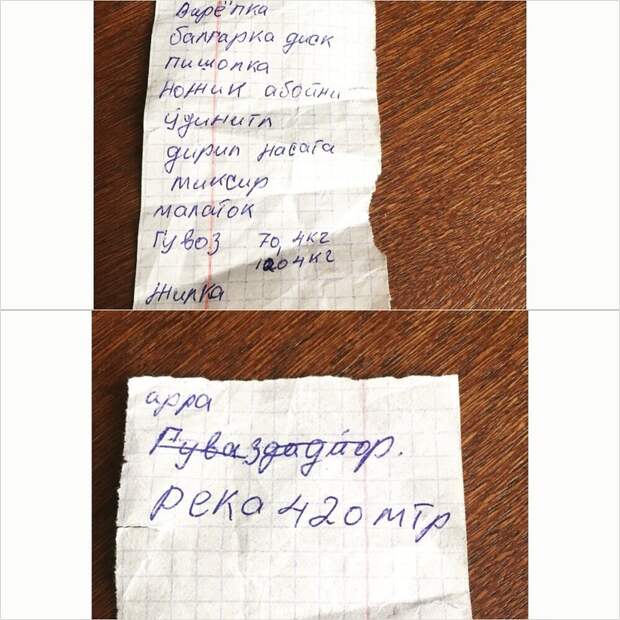 Варёпка
балгарка диск
пишолка
ножик абойни
удинитл
дирил насата
миксир
малаток
Гувоз 70, 4кг
120 4кг
Жирка
арра
Гуваздадёор.
река 420 мтр